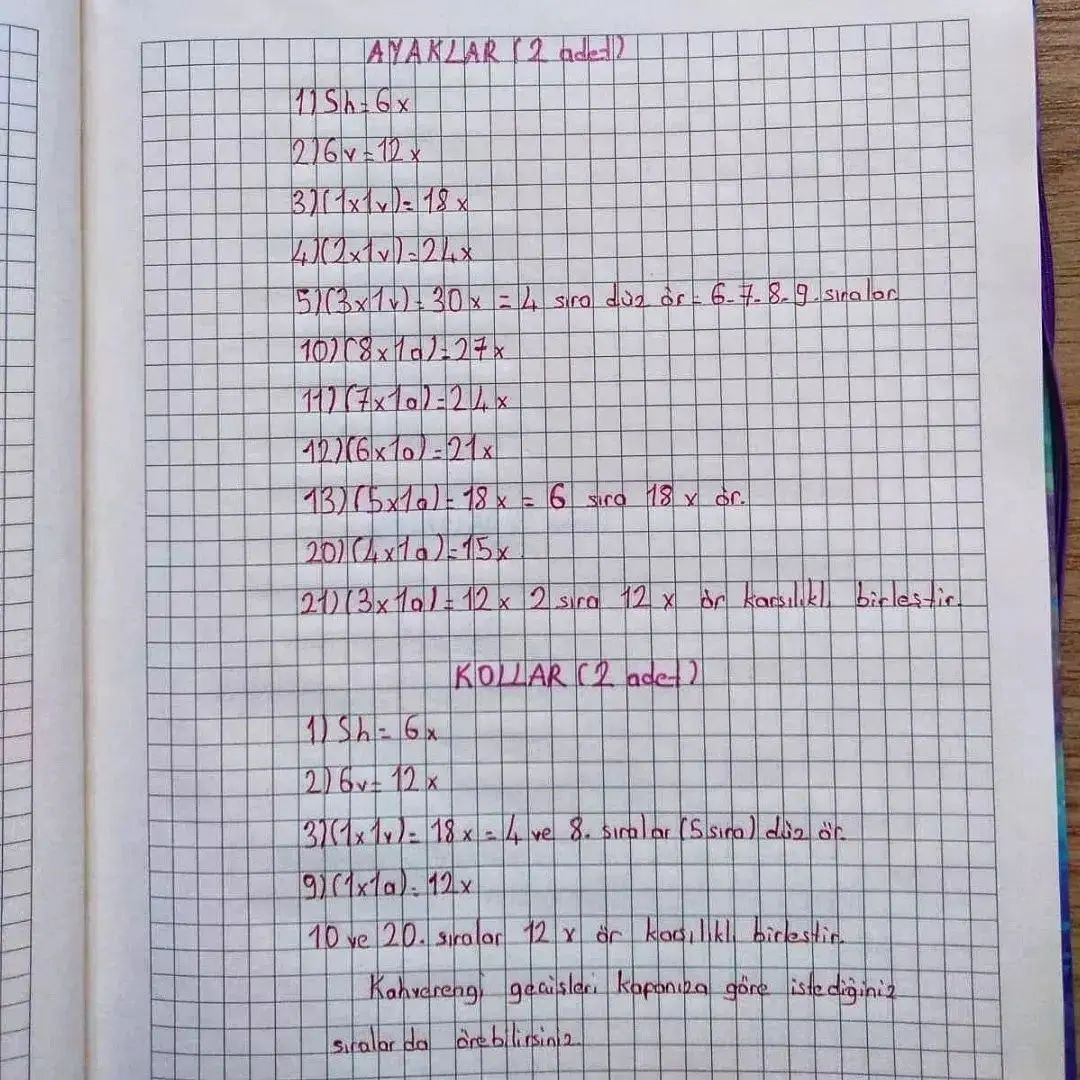 AYAKLAR (2 adet)
1) Sh = 6x
2) 6v = 12x
3) (1x1v) = 18x
4) (2x1v) = 24x
5) (3x1v) = 30x = 4 sıra düz ör = 6-7-8-9. sıralar
10) (8x1a) = 27x
11) (7x1a) = 24x
12) (6x1a) = 21x
13) (5x1a) = 18x = 6 sıra 18 x ör.
20) (4x1a) = 15x
21) (3x1a) = 12x 2 sıra 12 x ör karşılıklı birleştir.
KOLLAR (2 adet)
1) Sh = 6x
2) 6v = 12x
3) (1x1v) = 18x = 4 ve 8. sıralar (5 sıra) düz ör.
9) (1x1a) = 12x
10 ve 20. sıralar 12 x ör karşılıklı birleştir.
Kahverengi geçişleri kapanıza göre istediğiniz
sıralarda örebilirsiniz